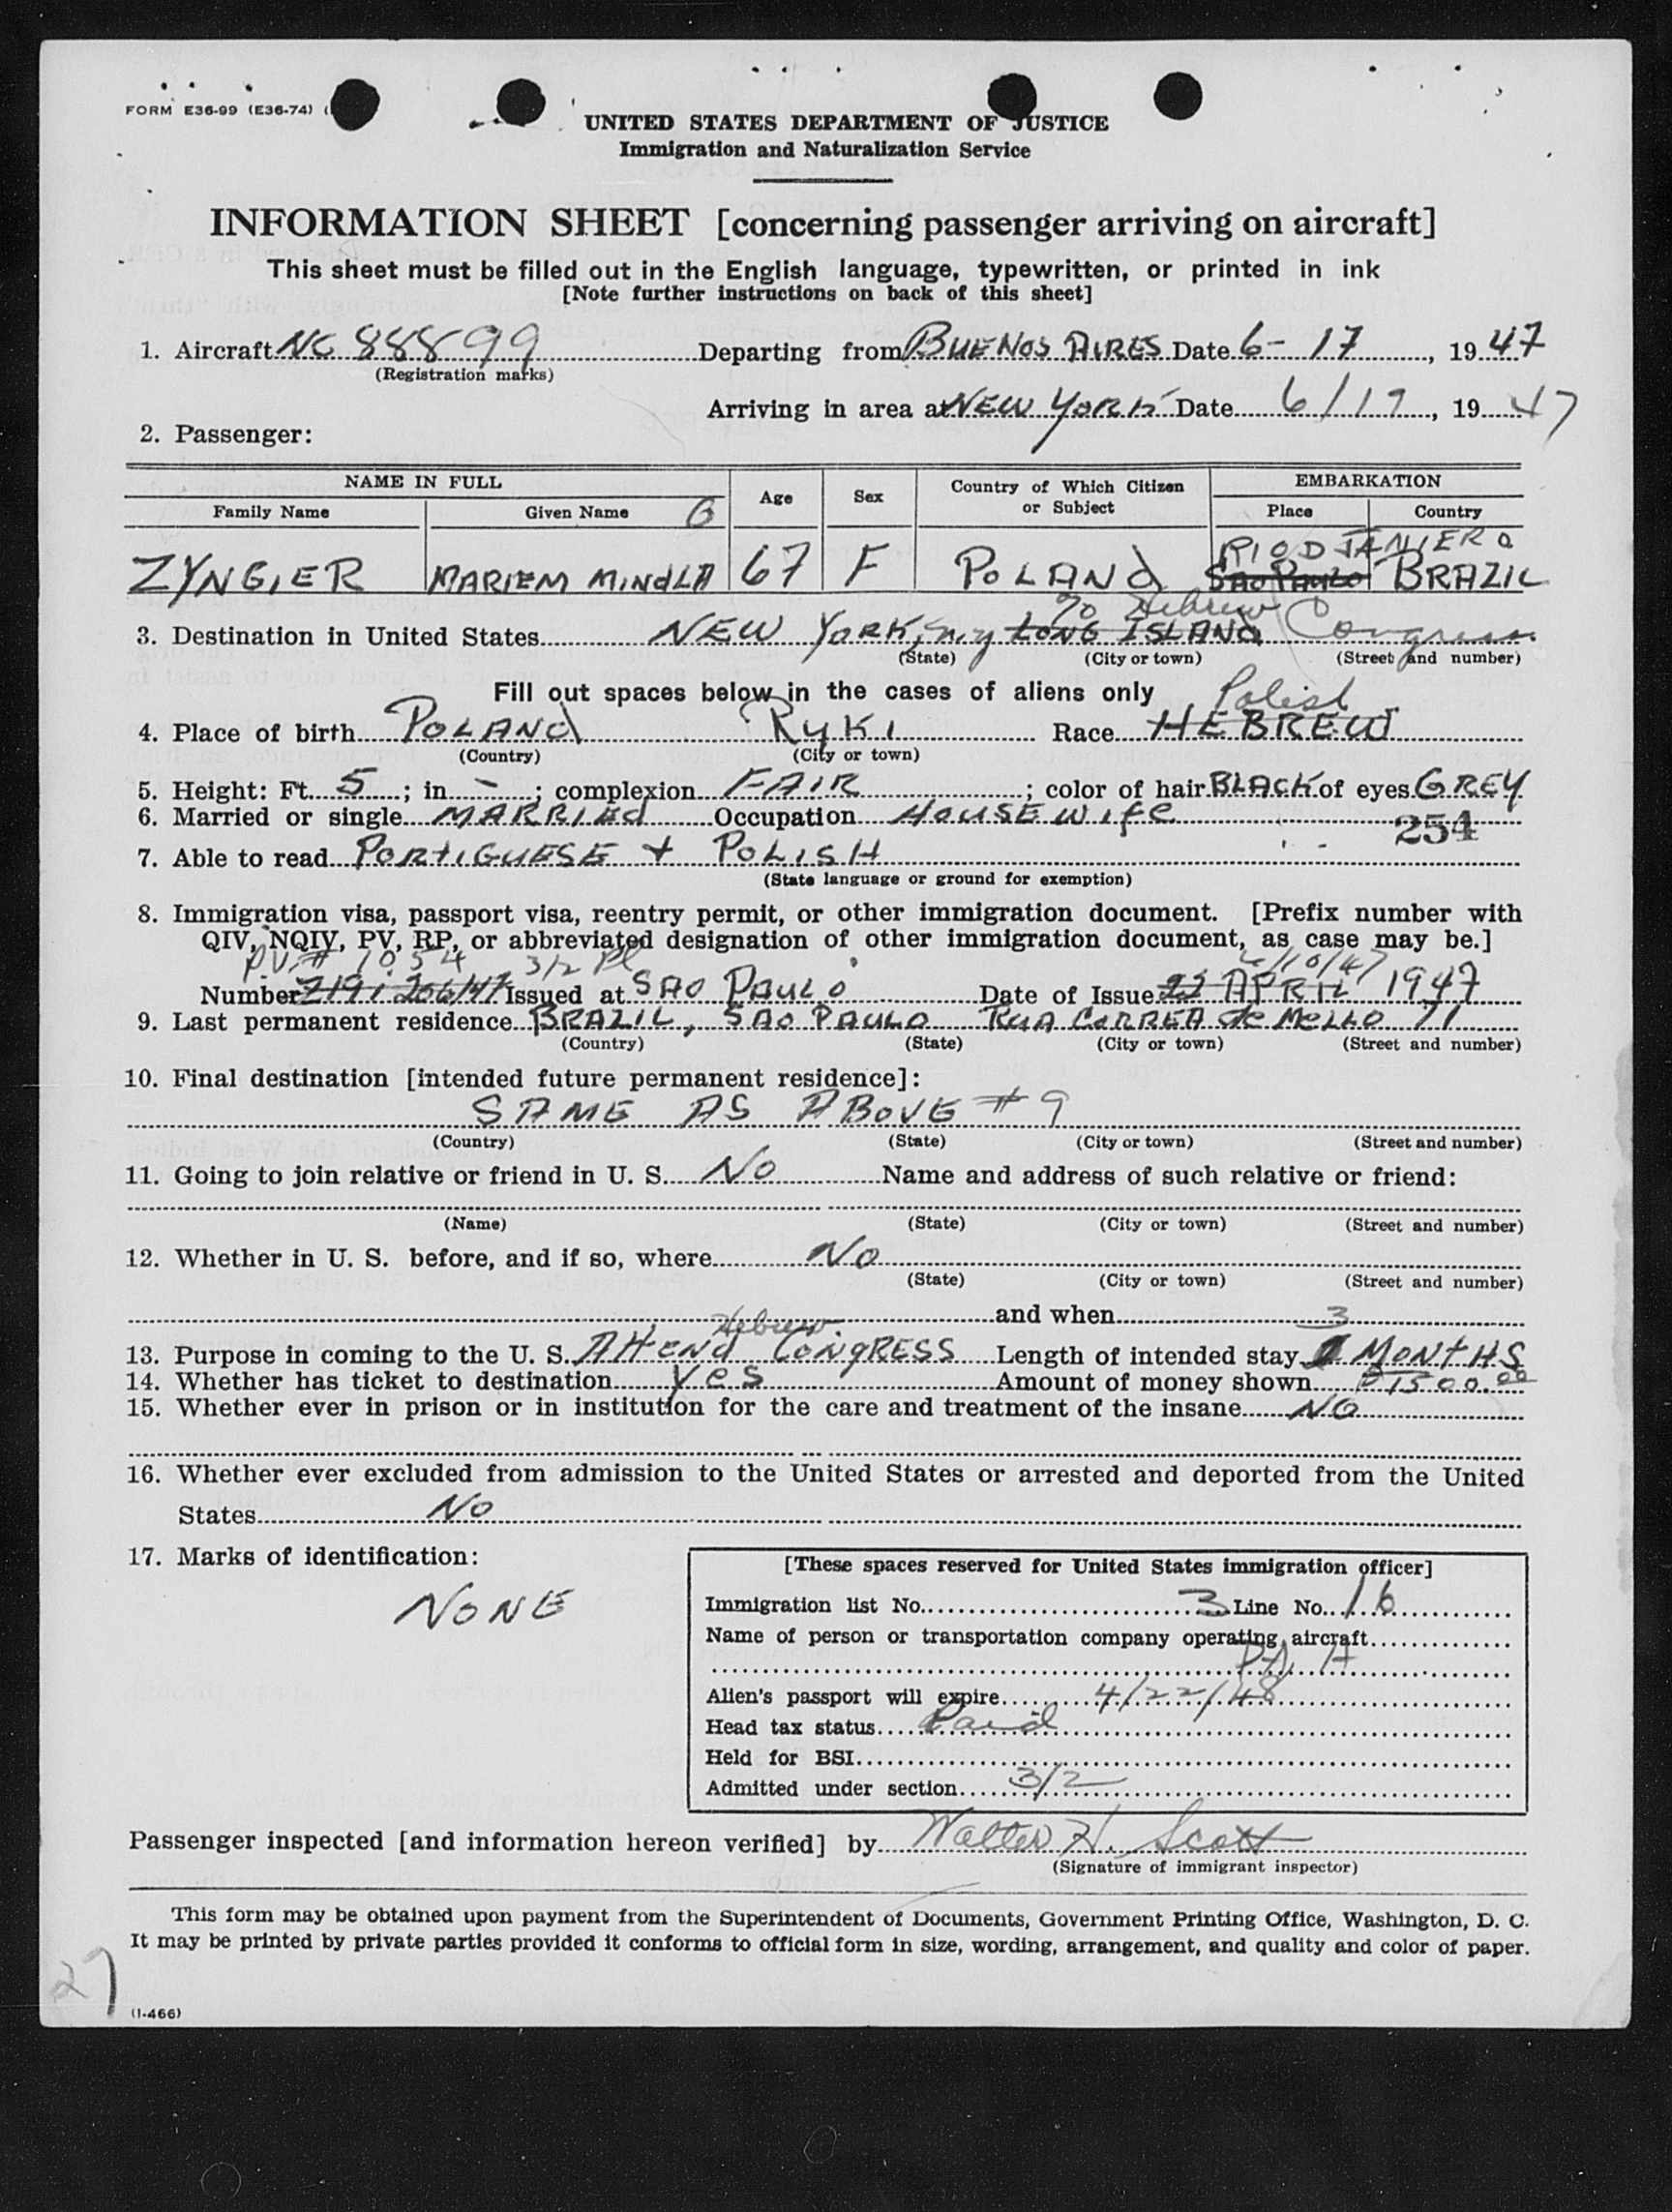 FORM E36-99 (E36-74) (
UNITED STATES DEPARTMENT OF JUSTICE
Immigration and Naturalization Service
INFORMATION SHEET [concerning passenger arriving on aircraft]
This sheet must be filled out in the English language, typewritten, or printed in ink
[Note further instructions on back of this sheet]
1. Aircraft NC 88899 Departing from BUENOS AIRES Date 6-17, 1947
(Registration marks)
Arriving in area at NEW YORK Date 6/19, 1947
2. Passenger:
NAME IN FULL Age Sex Country of Which Citizen or Subject EMBARKATION
Family Name Given Name G Place Country
RIO D JANIERO
ZYNGIER MARIEM MINDLA 67 F POLAND SAO PAULO BRAZIL
% Hebrew Congress
3. Destination in United States NEW YORK, N.Y LONG ISLAND
(State) (City or town) (Street and number)
Fill out spaces below in the cases of aliens only
Polish
4. Place of birth POLAND RYKI Race HEBREW
(Country) (City or town)
5. Height: Ft. 5; in -; complexion FAIR; color of hair BLACK of eyes GREY
6. Married or single MARRIED Occupation HOUSEWIFE
254
7. Able to read PORTIGUESE + POLISH
(State language or ground for exemption)
8. Immigration visa, passport visa, reentry permit, or other immigration document. [Prefix number with
QIV, NQIV, PV, RP, or abbreviated designation of other immigration document, as case may be.]
P.V.# 1054 3/2 Pl 6/10/47
Number 219 i 206/47 Issued at SAO PAULO Date of Issue 22 APRIL 1947
9. Last permanent residence BRAZIL, SAO PAULO RUA CORREA de MELLO 71
(Country) (State) (City or town) (Street and number)
10. Final destination [intended future permanent residence]:
SAME AS ABOVE # 9
(Country) (State) (City or town) (Street and number)
11. Going to join relative or friend in U. S. NO Name and address of such relative or friend:
(Name) (State) (City or town) (Street and number)
12. Whether in U. S. before, and if so, where NO
(State) (City or town) (Street and number)
and when
Hebrew 3
13. Purpose in coming to the U. S. ATTEND CONGRESS Length of intended stay MONTHS
14. Whether has ticket to destination YES Amount of money shown $1500.00
15. Whether ever in prison or in institution for the care and treatment of the insane NO
16. Whether ever excluded from admission to the United States or arrested and deported from the United
States NO
17. Marks of identification:
NONE
[These spaces reserved for United States immigration officer]
Immigration list No. 3 Line No. 16
Name of person or transportation company operating aircraft
PAA
Alien's passport will expire 4/22/48
Head tax status Paid
Held for BSI
Admitted under section 3/2
Passenger inspected [and information hereon verified] by Walter H. Scott
(Signature of immigrant inspector)
This form may be obtained upon payment from the Superintendent of Documents, Government Printing Office, Washington, D. C.
It may be printed by private parties provided it conforms to official form in size, wording, arrangement, and quality and color of paper.
27
(I-466)